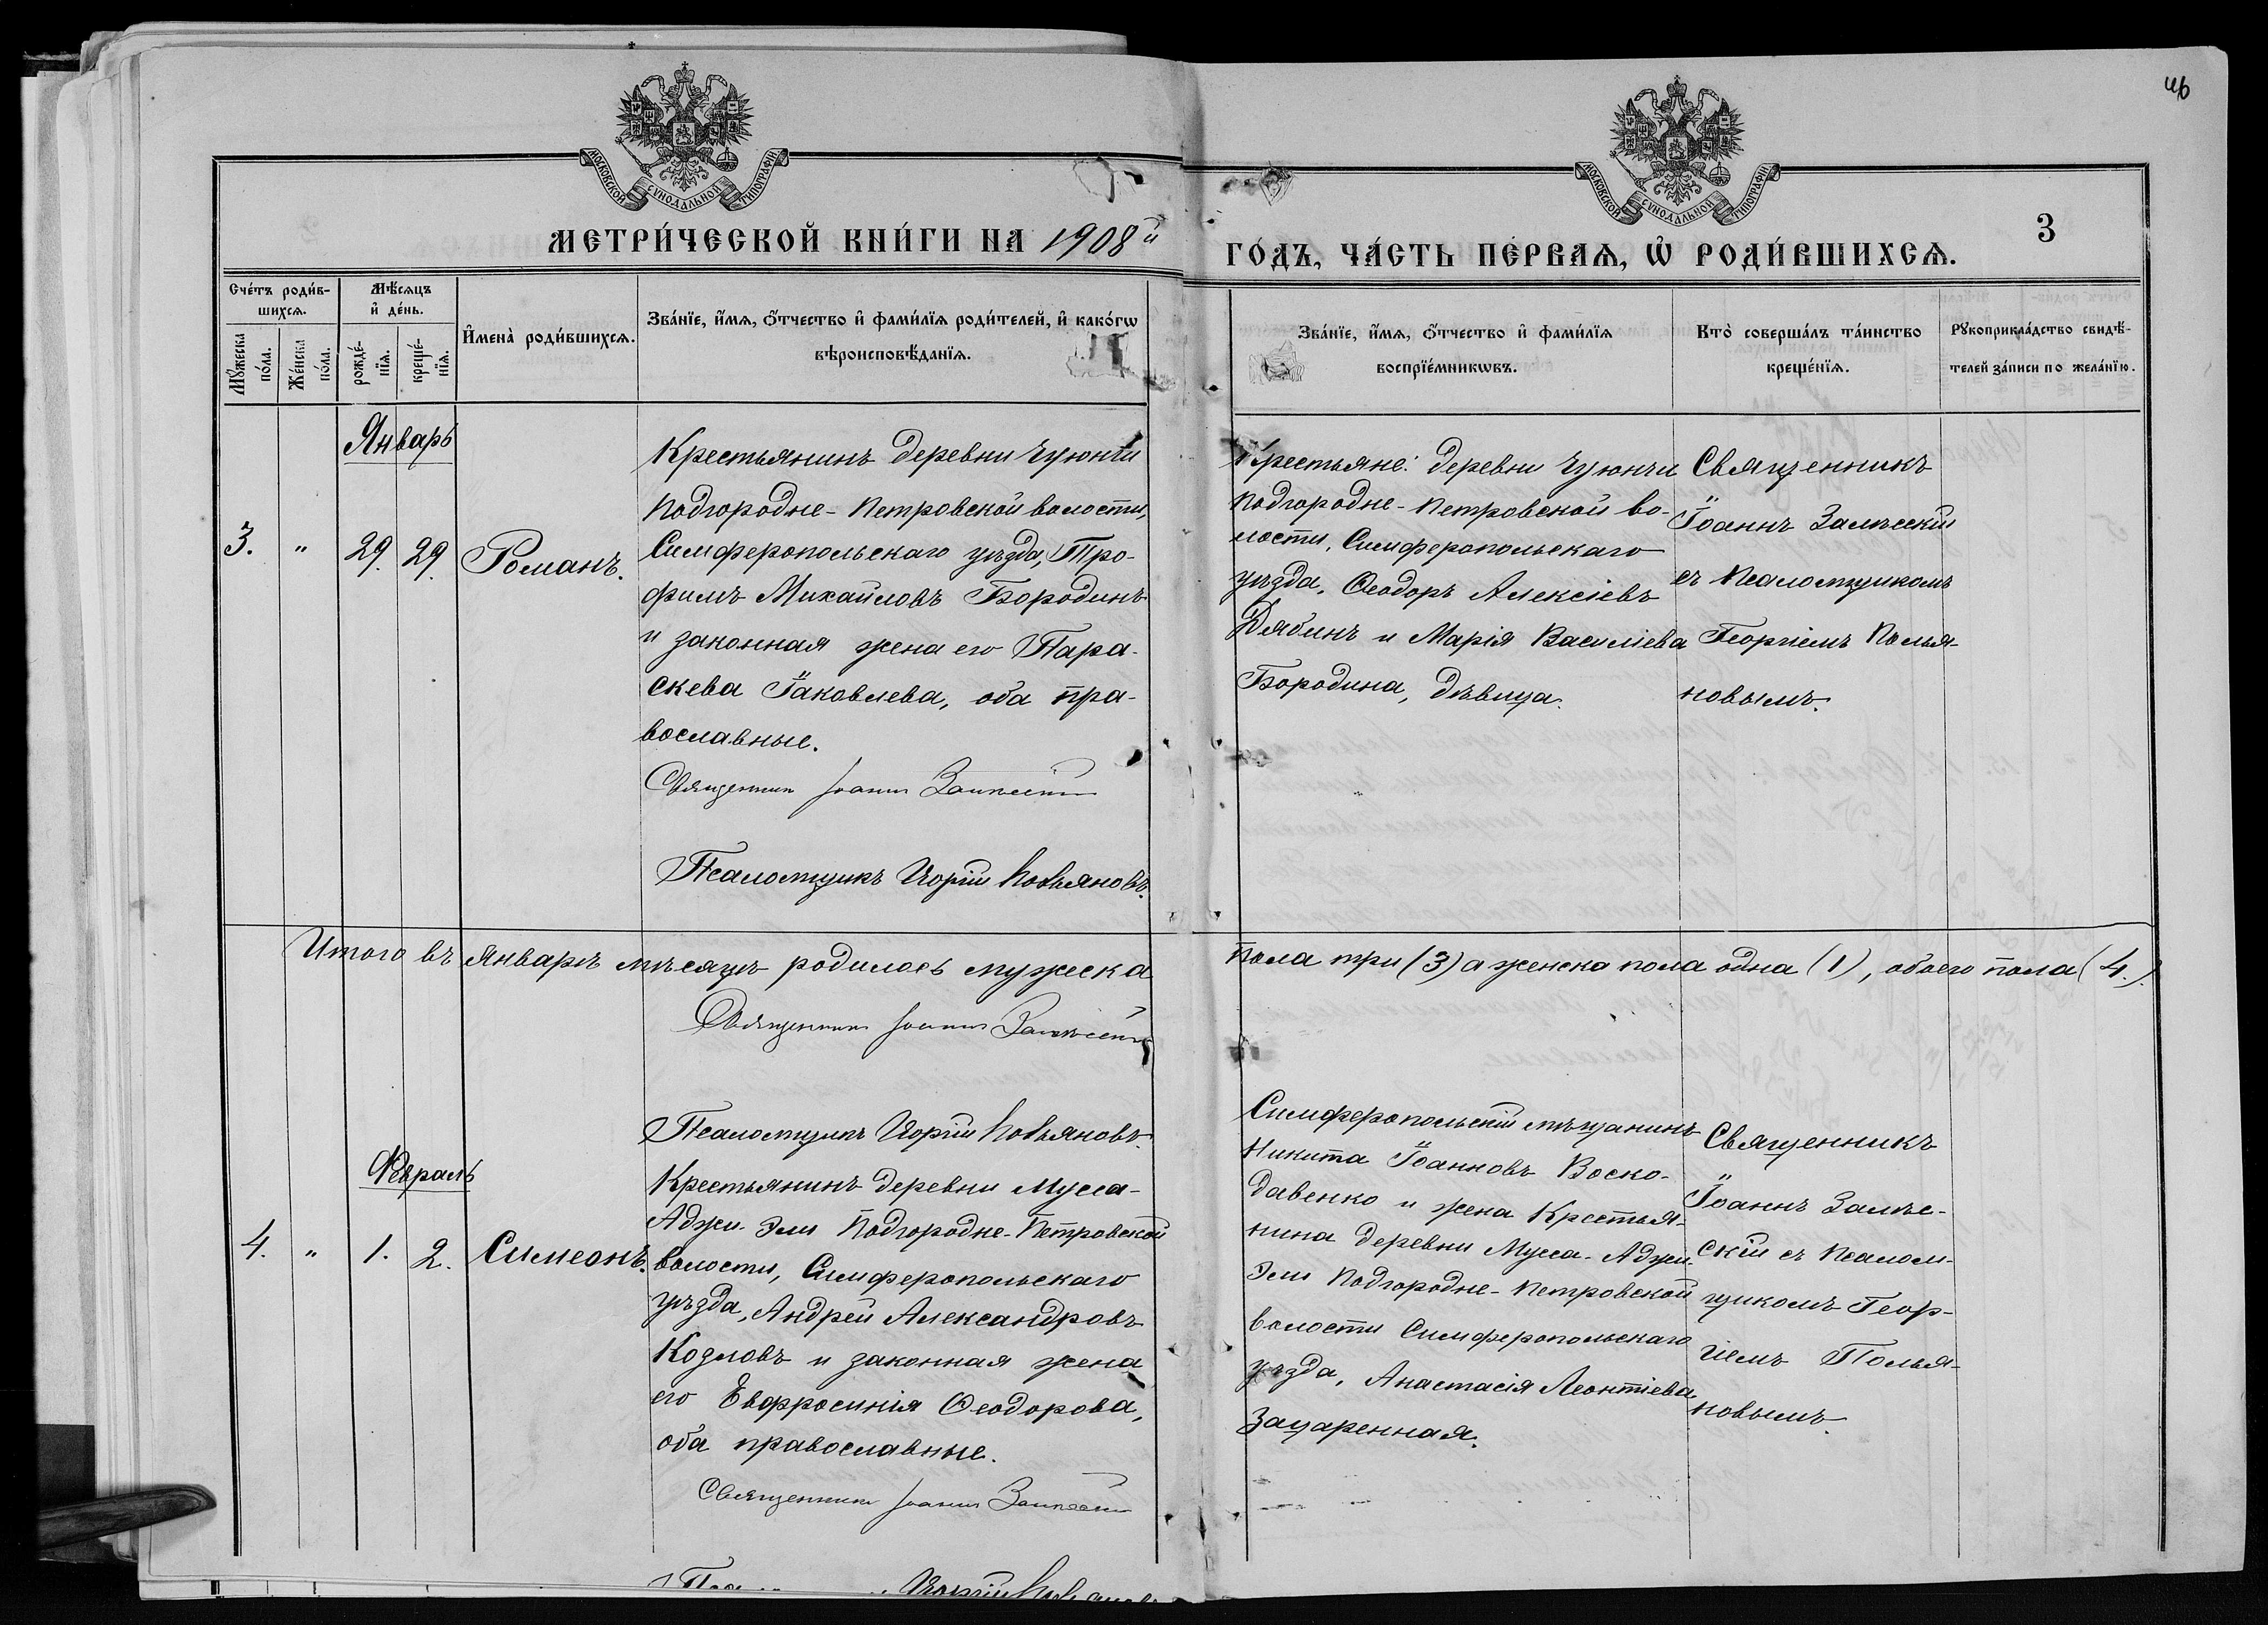 46
МОСКОВСКОЙ СѴНОДАЛЬНОЙ ТИПОГРАФІИ
МОСКОВСКОЙ СѴНОДАЛЬНОЙ ТИПОГРАФІИ
МЕТРИ́ЧЕСКОЙ КНИ́ГИ НА 1908й
ГО́ДЪ, ЧА́СТЬ ПЕ́РВАѦ, Ѡ҆ РОДИ́ВШИХСѦ.
3
Сче́тъ роди́в-
шихсѧ.
Мꙋ́жеска по́ла.
Же́нска по́ла.
Мѣ́сѧцъ
и҆ де́нь.
рожде́-
нїѧ.
креще́-
нїѧ.
И҆мена̀ роди́вшихсѧ.
Зва́нїе, и҆́мѧ, ѻ҆́тчество и҆ фами́лїѧ роди́телей, и҆ како́гѡ
вѣроисповѣ́данїѧ.
Зва́нїе, и҆́мѧ, ѻ҆́тчество и҆ фами́лїѧ
воспрїе́мникѡвъ.
Кто̀ соверша́лъ та́инство
креще́нїѧ.
Рꙋкоприкла́дство свидѣ́-
телей за́писи по жела́нїю.
Январь
3.
"
29.
29.
Романъ.
Крестьянинъ деревни Чуюнчи
Подгородне-Петровской волости,
Симферопольскаго уѣзда, Тро-
фимъ Михайловъ Бородинъ
и законная жена его Пара-
скева Іаковлева, оба пра-
вославные.
Священник Іоанн Залѣсскій
Псаломщикъ Георгій Польяновъ.
Крестьяне: деревни Чуюнчи
Подгородне-Петровской во-
лости, Симферопольскаго
уѣзда, Ѳеодоръ Алексіевъ
Дябинъ и Марія Василіева
Бородина, дѣвица.
Священникъ
Іоаннъ Залѣсскій
съ Псаломщикомъ
Георгіемъ Полья-
новымъ.
Итого въ январѣ мѣсяцѣ родилось мужеска
пола три (3) а женска пола одна (1), обоего пола (4.).
Священник Іоанн Залѣсскій
Псаломщикъ Георгій Польяновъ.
Февраль
4.
"
1.
2.
Симеонъ.
Крестьянинъ деревни Мусса-
Аджи-Эли Подгородне-Петровской
волости, Симферопольскаго
уѣзда, Андрей Александровъ
Козловъ и законная жена
его Евфросинія Ѳеодорова,
оба православные.
Священник Іоанн Залѣсскій
Симферопольскій мѣщанинъ
Никита Іоанновъ Воско-
давенко и жена Крестья-
нина деревни Мусса-Аджи-
Эли Подгородне-Петровской
волости Симферопольскаго
уѣзда, Анастасія Леонтіева
Зацаренная.
Священникъ
Іоаннъ Залѣс-
скій съ Псалом-
щикомъ Геор-
гіемъ Полья-
новымъ.